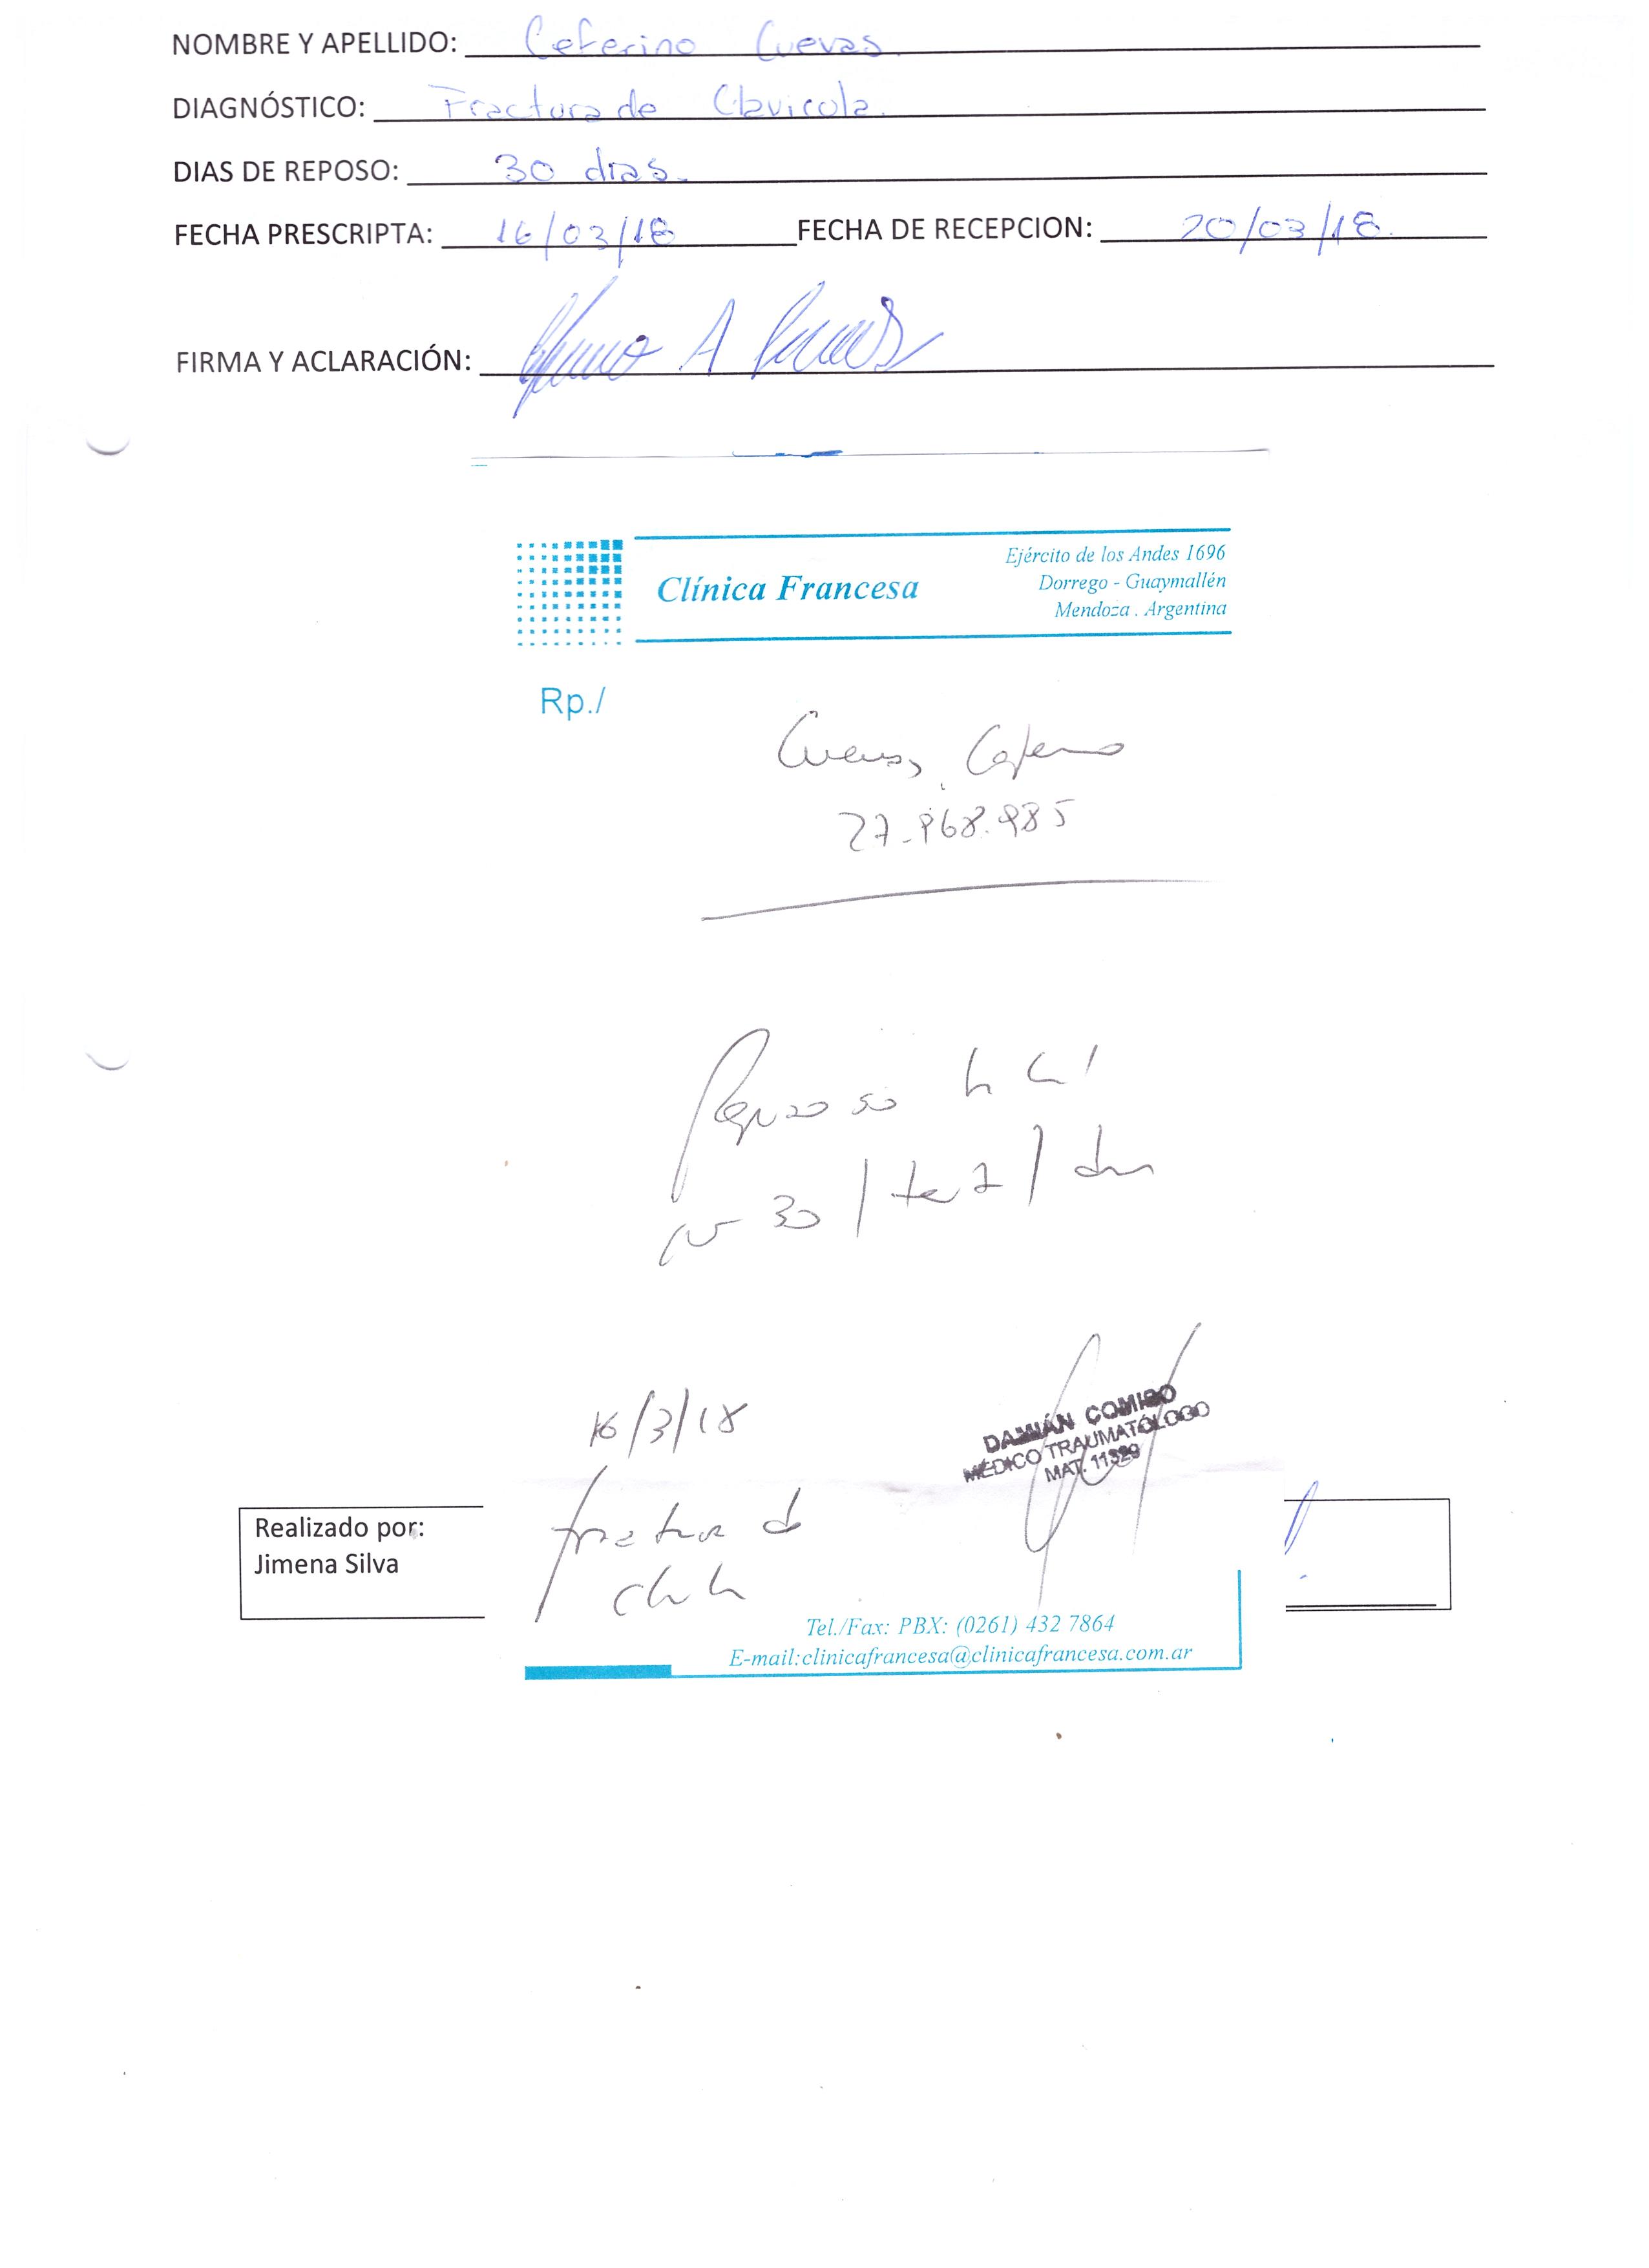 NOMBRE Y APELLIDO: Ceferino Cuevas
DIAGNÓSTICO: Fractura de Clavicola
DIAS DE REPOSO: 30 dias.
FECHA PRESCRIPTA: 16/03/18 FECHA DE RECEPCION: 20/03/18
FIRMA Y ACLARACIÓN:
Clínica Francesa
Ejército de los Andes 1696
Dorrego - Guaymallén
Mendoza . Argentina
Rp./
Cuevas, Ceferino
27.968.985
30 / /
16/3/18
DAMIÁN COMISO
MÉDICO TRAUMATÓLOGO
MAT. 11329
Realizado por:
Jimena Silva
fractura de
Tel./Fax: PBX: (0261) 432 7864
E-mail:clinicafrancesa@clinicafrancesa.com.ar